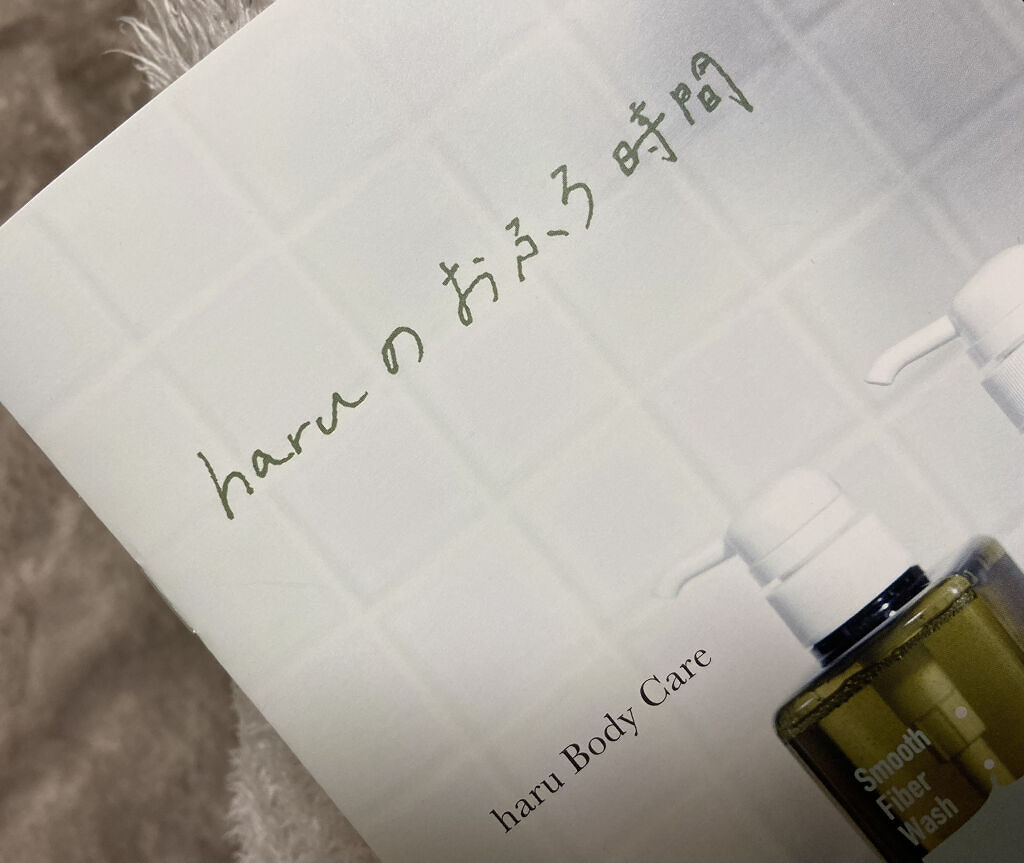 haruのおふろ時間
haru Body Care
Smooth
Fiber
Wash